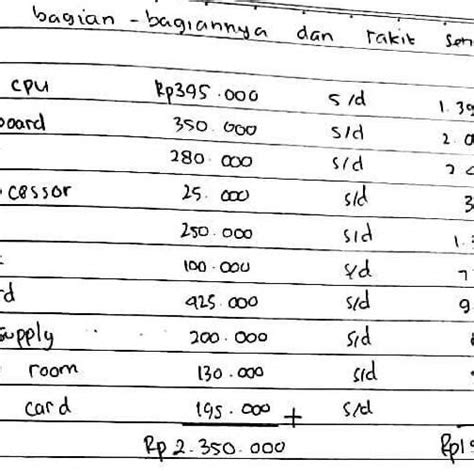 bagian - bagiannya dan rakit sen
cpu Rp395.000 s/d 1.39
board 350.000 s/d 2.0
280.000 s/d 2.0
cessor 25.000 s/d 3
250.000 s/d 1.
100.000 s/d 7
rd 925.000 s/d 9
supply 200.000 s/d
room 130.000 s/d
card 195.000 + s/d
Rp 2.350.000 Rp19